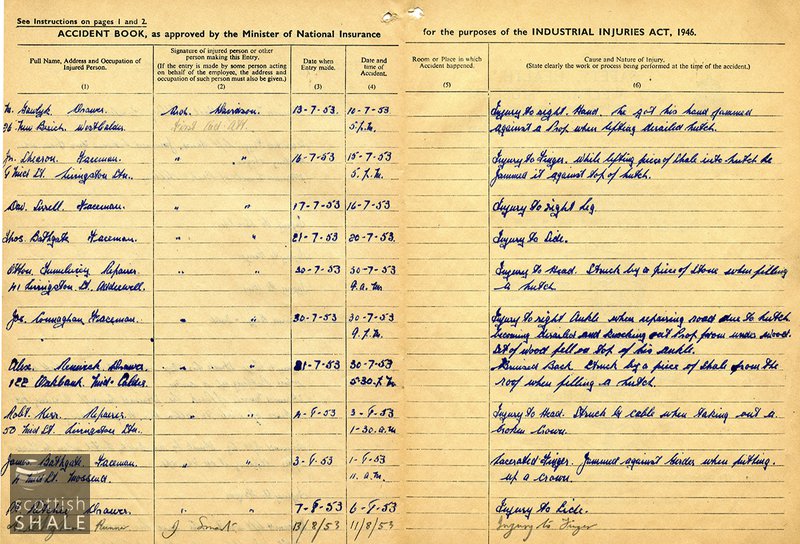 See Instructions on pages 1 and 2.
ACCIDENT BOOK, as approved by the Minister of National Insurance for the purposes of the INDUSTRIAL INJURIES ACT, 1946.
Full Name, Address and Occupation of Injured Person.
(1)
Signature of injured person or other person making this Entry.
(If the entry is made by some person acting on behalf of the employee, the address and occupation of such person must also be given.)
(2)
Date when Entry made.
(3)
Date and time of Accident.
(4)
Room or Place in which Accident happened.
(5)
Cause and Nature of Injury.
(State clearly the work or process being performed at the time of the accident.)
(6)
Drawer Rich. Morrison 13-7-53 10-7-53 Injury to right. Hand. He got his hand jammed
Westcalder First Aid Att. 5 P.M. against a Prop when lifting derailed hutch.
Faceman " " 16-7-53 15-7-53 Injury to Finger. While lifting piece of Shale into hutch he
9 Mid St. Livingston Stn. 5. P.M. jammed it against top of hutch.
Dav. Faceman " " 17-7-53 16-7-53 Injury to right Leg.
Thos. Bathgate Faceman " " 21-7-53 20-7-53 Injury to Side.
Repairer " " 30-7-53 30-7-53 Injury to Head. Struck by a piece of Stone when filling
41 Livingston St. Addiewell 9. a.m. a hutch
Jas. Connaghan Faceman " " 30-7-53 30-7-53 Injury to right Ankle when repairing road due to hutch
9. P.M. becoming derailed and knocking out Prop from under wood.
Set of wood fell on top of his ankle.
Alex. Renwick Drawer " " 31-7-53 30-7-53 Bruised Back Struck by a piece of Shale from the
122 Oakbank. Mid-Calder 5-30. P.M. roof when filling a hutch.
Robt. Kerr. Repairer " " 4-8-53 3-8-53 Injury to Head. Struck by cable when taking out a
50 Mid St. Livingston Stn. 1-30. a.m broken Crown.
James Bathgate Faceman " " 3-8-53 1-8-53 Lacerated Finger. Jammed against Girder when putting.
Mid St. Mossend 11. a.m. up a crown.
Drawer " " 7-8-53 6-8-53 Injury to Side.
Runner J Smart 13/8/53 11/8/53 Injury to Finger
Scottish
SHALE